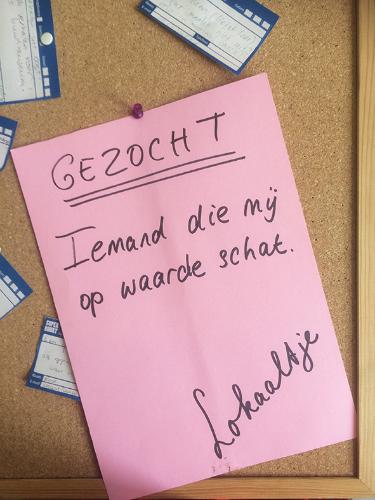 GEZOCHT
Iemand die mij
op waarde schat.
Lokaaltje